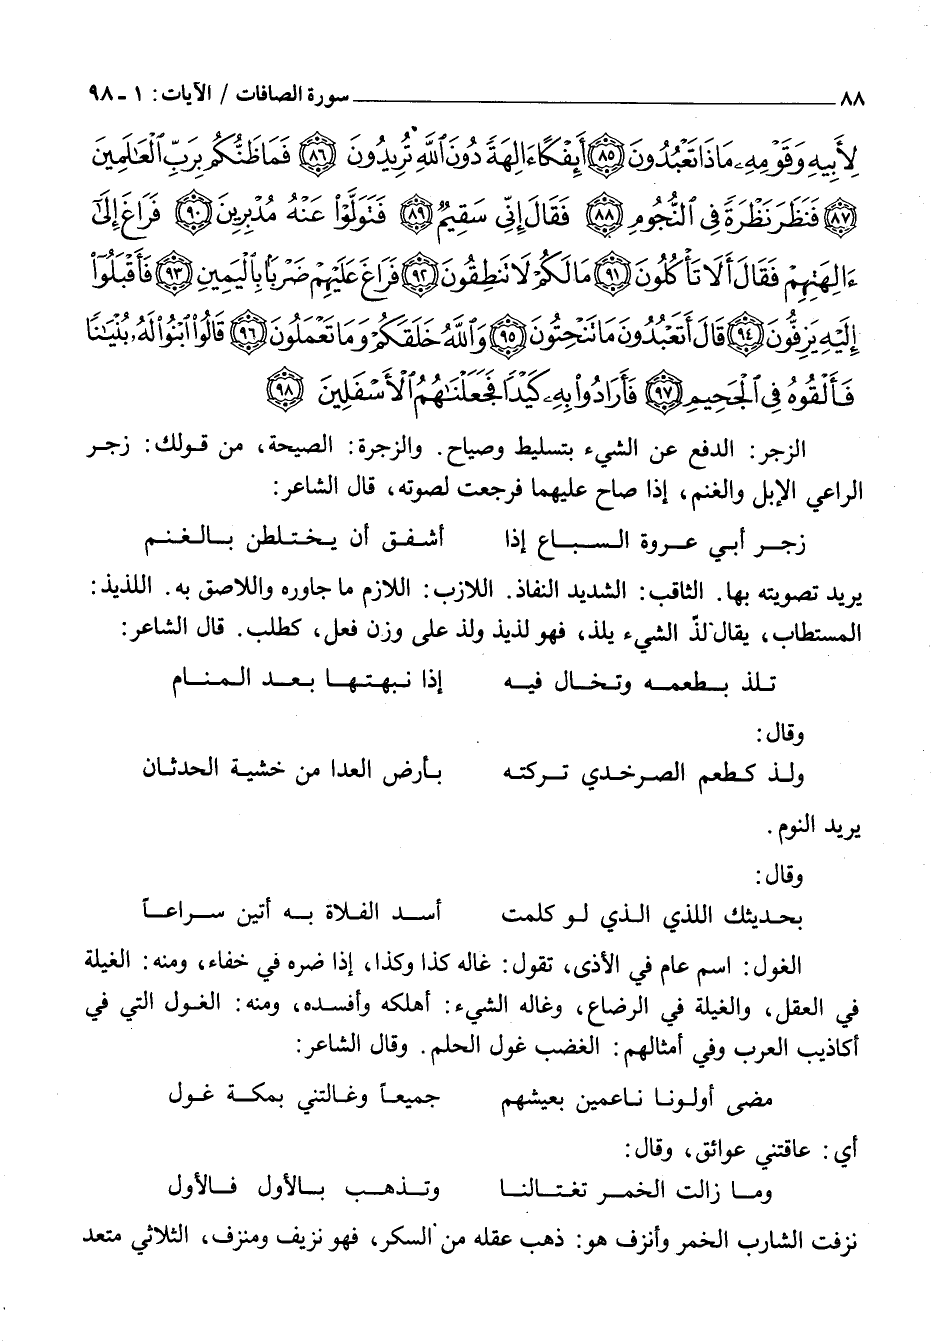 ٨٨ سورة الصافات / الآيات: ١ - ٩٨
لِأَبِيهِ وَقَوْمِهِۦ مَاذَا تَعْبُدُونَ ﴿٨٥﴾ أَئِفْكًا ءَالِهَةً دُونَ ٱللَّهِ تُرِيدُونَ ﴿٨٦﴾ فَمَا ظَنُّكُم بِرَبِّ ٱلْعَٰلَمِينَ
﴿٨٧﴾ فَنَظَرَ نَظْرَةً فِى ٱلنُّجُومِ ﴿٨٨﴾ فَقَالَ إِنِّى سَقِيمٌ ﴿٨٩﴾ فَتَوَلَّوْا۟ عَنْهُ مُدْبِرِينَ ﴿٩٠﴾ فَرَاغَ إِلَىٰٓ
ءَالِهَتِهِمْ فَقَالَ أَلَا تَأْكُلُونَ ﴿٩١﴾ مَا لَكُمْ لَا تَنطِقُونَ ﴿٩٢﴾ فَرَاغَ عَلَيْهِمْ ضَرْبًۢا بِٱلْيَمِينِ ﴿٩٣﴾ فَأَقْبَلُوٓا۟
إِلَيْهِ يَزِفُّونَ ﴿٩٤﴾ قَالَ أَتَعْبُدُونَ مَا تَنْحِتُونَ ﴿٩٥﴾ وَٱللَّهُ خَلَقَكُمْ وَمَا تَعْمَلُونَ ﴿٩٦﴾ قَالُوا۟ ٱبْنُوا۟ لَهُۥ بُنْيَٰنًا
فَأَلْقُوهُ فِى ٱلْجَحِيمِ ﴿٩٧﴾ فَأَرَادُوا۟ بِهِۦ كَيْدًا فَجَعَلْنَٰهُمُ ٱلْأَسْفَلِينَ ﴿٩٨﴾
الزجر: الدفع عن الشيء بتسليط وصياح. والزجرة: الصيحة، من قولك: زجر
الراعي الإبل والغنم، إذا صاح عليهما فرجعت لصوته، قال الشاعر:
زجر أبي عروة السباع إذا أشفق أن يختلطن بالغنم
يريد تصويته بها. الثاقب: الشديد النفاذ. اللازب: اللازم ما جاوره واللاصق به. اللذيذ:
المستطاب، يقال لذّ الشيء يلذ، فهو لذيذ ولذ على وزن فعل، كطلب. قال الشاعر:
تلذ بطعمه وتخال فيه إذا نبهتها بعد المنام
وقال:
ولذ كطعم الصرخدي تركته بأرض العدا من خشية الحدثان
يريد النوم.
وقال:
بحديثك اللذي الذي لو كلمت أسد الفلاة به أتين سراعاً
الغول: اسم عام في الأذى، تقول: غاله كذا وكذا، إذا ضره في خفاء، ومنه: الغيلة
في العقل، والغيلة في الرضاع، وغاله الشيء: أهلكه وأفسده، ومنه: الغول التي في
أكاذيب العرب وفي أمثالهم: الغضب غول الحلم. وقال الشاعر:
مضى أولونا ناعمين بعيشهم جميعاً وغالتني بمكة غول
أي: عاقتني عوائق، وقال:
وما زالت الخمر تغتالنا وتذهب بالأول فالأول
نزفت الشارب الخمر وأنزف هو: ذهب عقله من السكر، فهو نزيف ومنزف، الثلاثي متعد